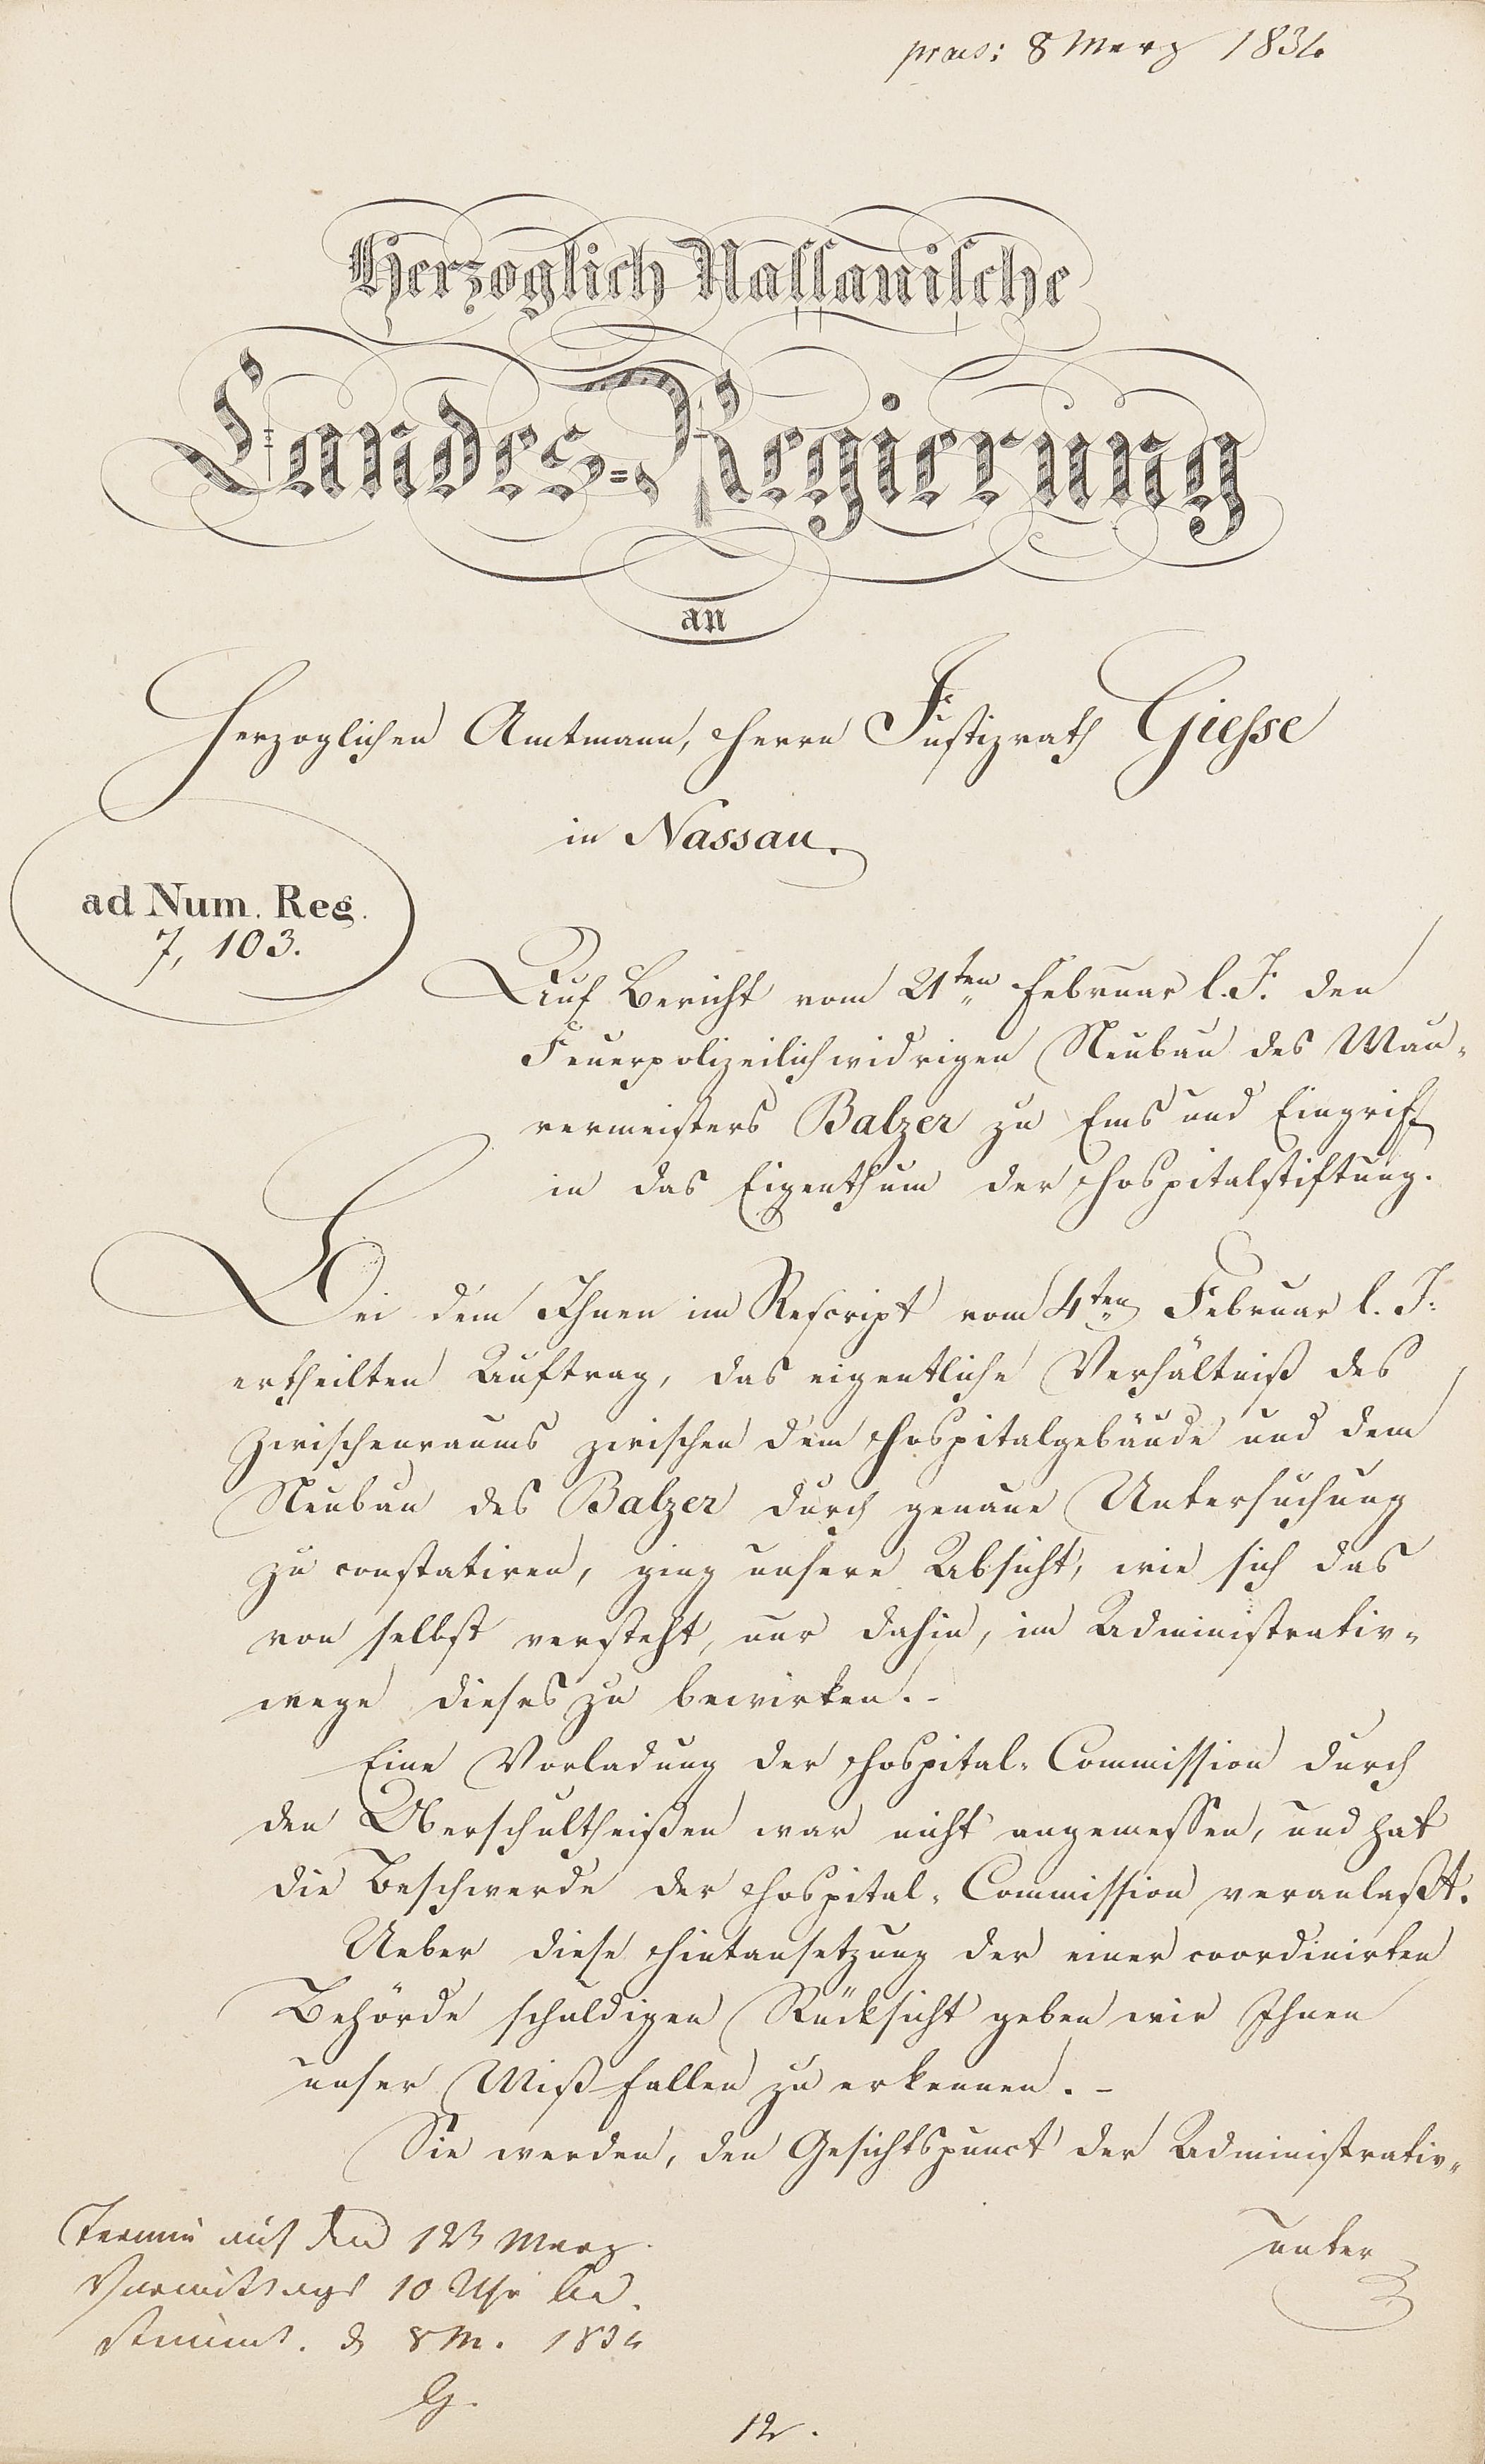 praes: 8 Merz 1834
Herzoglich Nassauische
Landes=Regierung
an
Herzoglichen Amtmann, Herrn Justizrath Giesse
in Nassau.
ad Num. Reg.
7, 103.
Auf Bericht vom 21ten Februar l. J. den
Feuerpolizeilichwidrigen Neubau des Mau-
rermeisters Balzer zu Ems und Eingriff
in das Eigenthum der Hospitalstiftung.
Bei dem Ihnen im Rescript vom 4ten Februar l. J:
ertheilten Auftrag, das eigentliche Verhältniß des
Zwischenraums zwischen dem Hospitalgebäude und dem
Neubau des Balzer durch genaue Untersuchung
zu constatiren, ging unsere Absicht, wie sich das
von selbst versteht, nur dahin, im Administrativ-
wege dieses zu bewirken. -
Eine Vorladung der Hospital-Commission durch
den Oberschultheißen war nicht angemessen, und hat
die Beschwerde der Hospital-Commission veranlaßt.
Ueber diese Hintansetzung der einer coordinirten
Behörde schuldigen Rücksicht geben wir Ihnen
unser Mißfallen zu erkennen. -
Sie werden, den Gesichtspunct der Administrativ-
unter
Termin auf den 123 Merz
Vormittags 10 Uhr be
stimmt. d 8 M. 1834
G.
12.